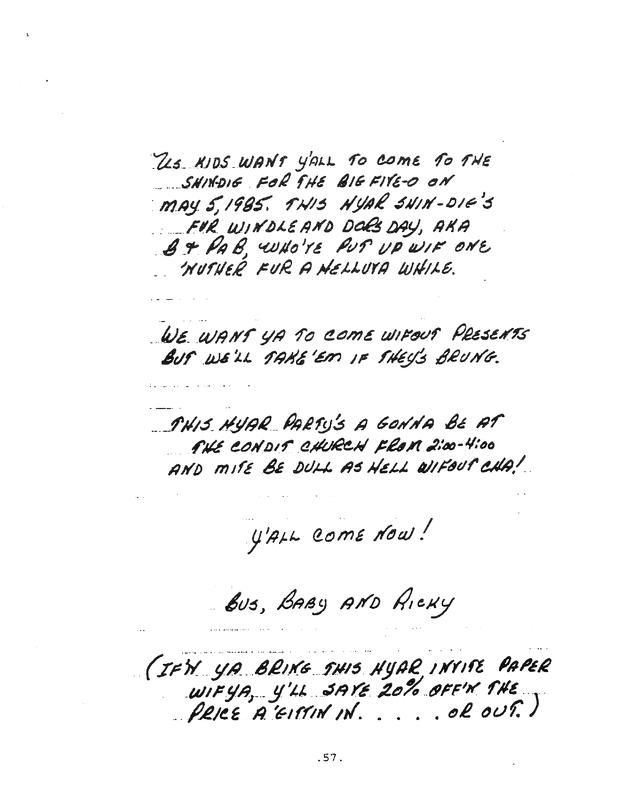 Us KIDS WANT Y'ALL TO COME TO THE
SHINDIG FOR THE BIG FIVE-O ON
MAY 5, 1985. THIS HYAR SHIN-DIG'S
FUR WINDLE AND DORS DAY, AKA
B & PA B, WHO'VE PUT UP WIF ONE
'NUTHER FUR A HELLUVA WHILE.
WE WANT YA TO COME WIFOUT PRESENTS
BUT WE'LL TAKE 'EM IF THEY'S BRUNG.
THIS HYAR PARTY'S A GONNA BE AT
THE CONDIT CHURCH FROM 2:00-4:00
AND MITE BE DULL AS HELL WIFOUT CHA!
Y'ALL COME NOW!
BUS, BABY AND RICKY
(IF'N YA BRING THIS HYAR INVITE PAPER
WIF YA, Y'LL SAVE 20% OFF'N THE
PRICE A 'GITTIN IN. . . . . OR OUT.)
.57.